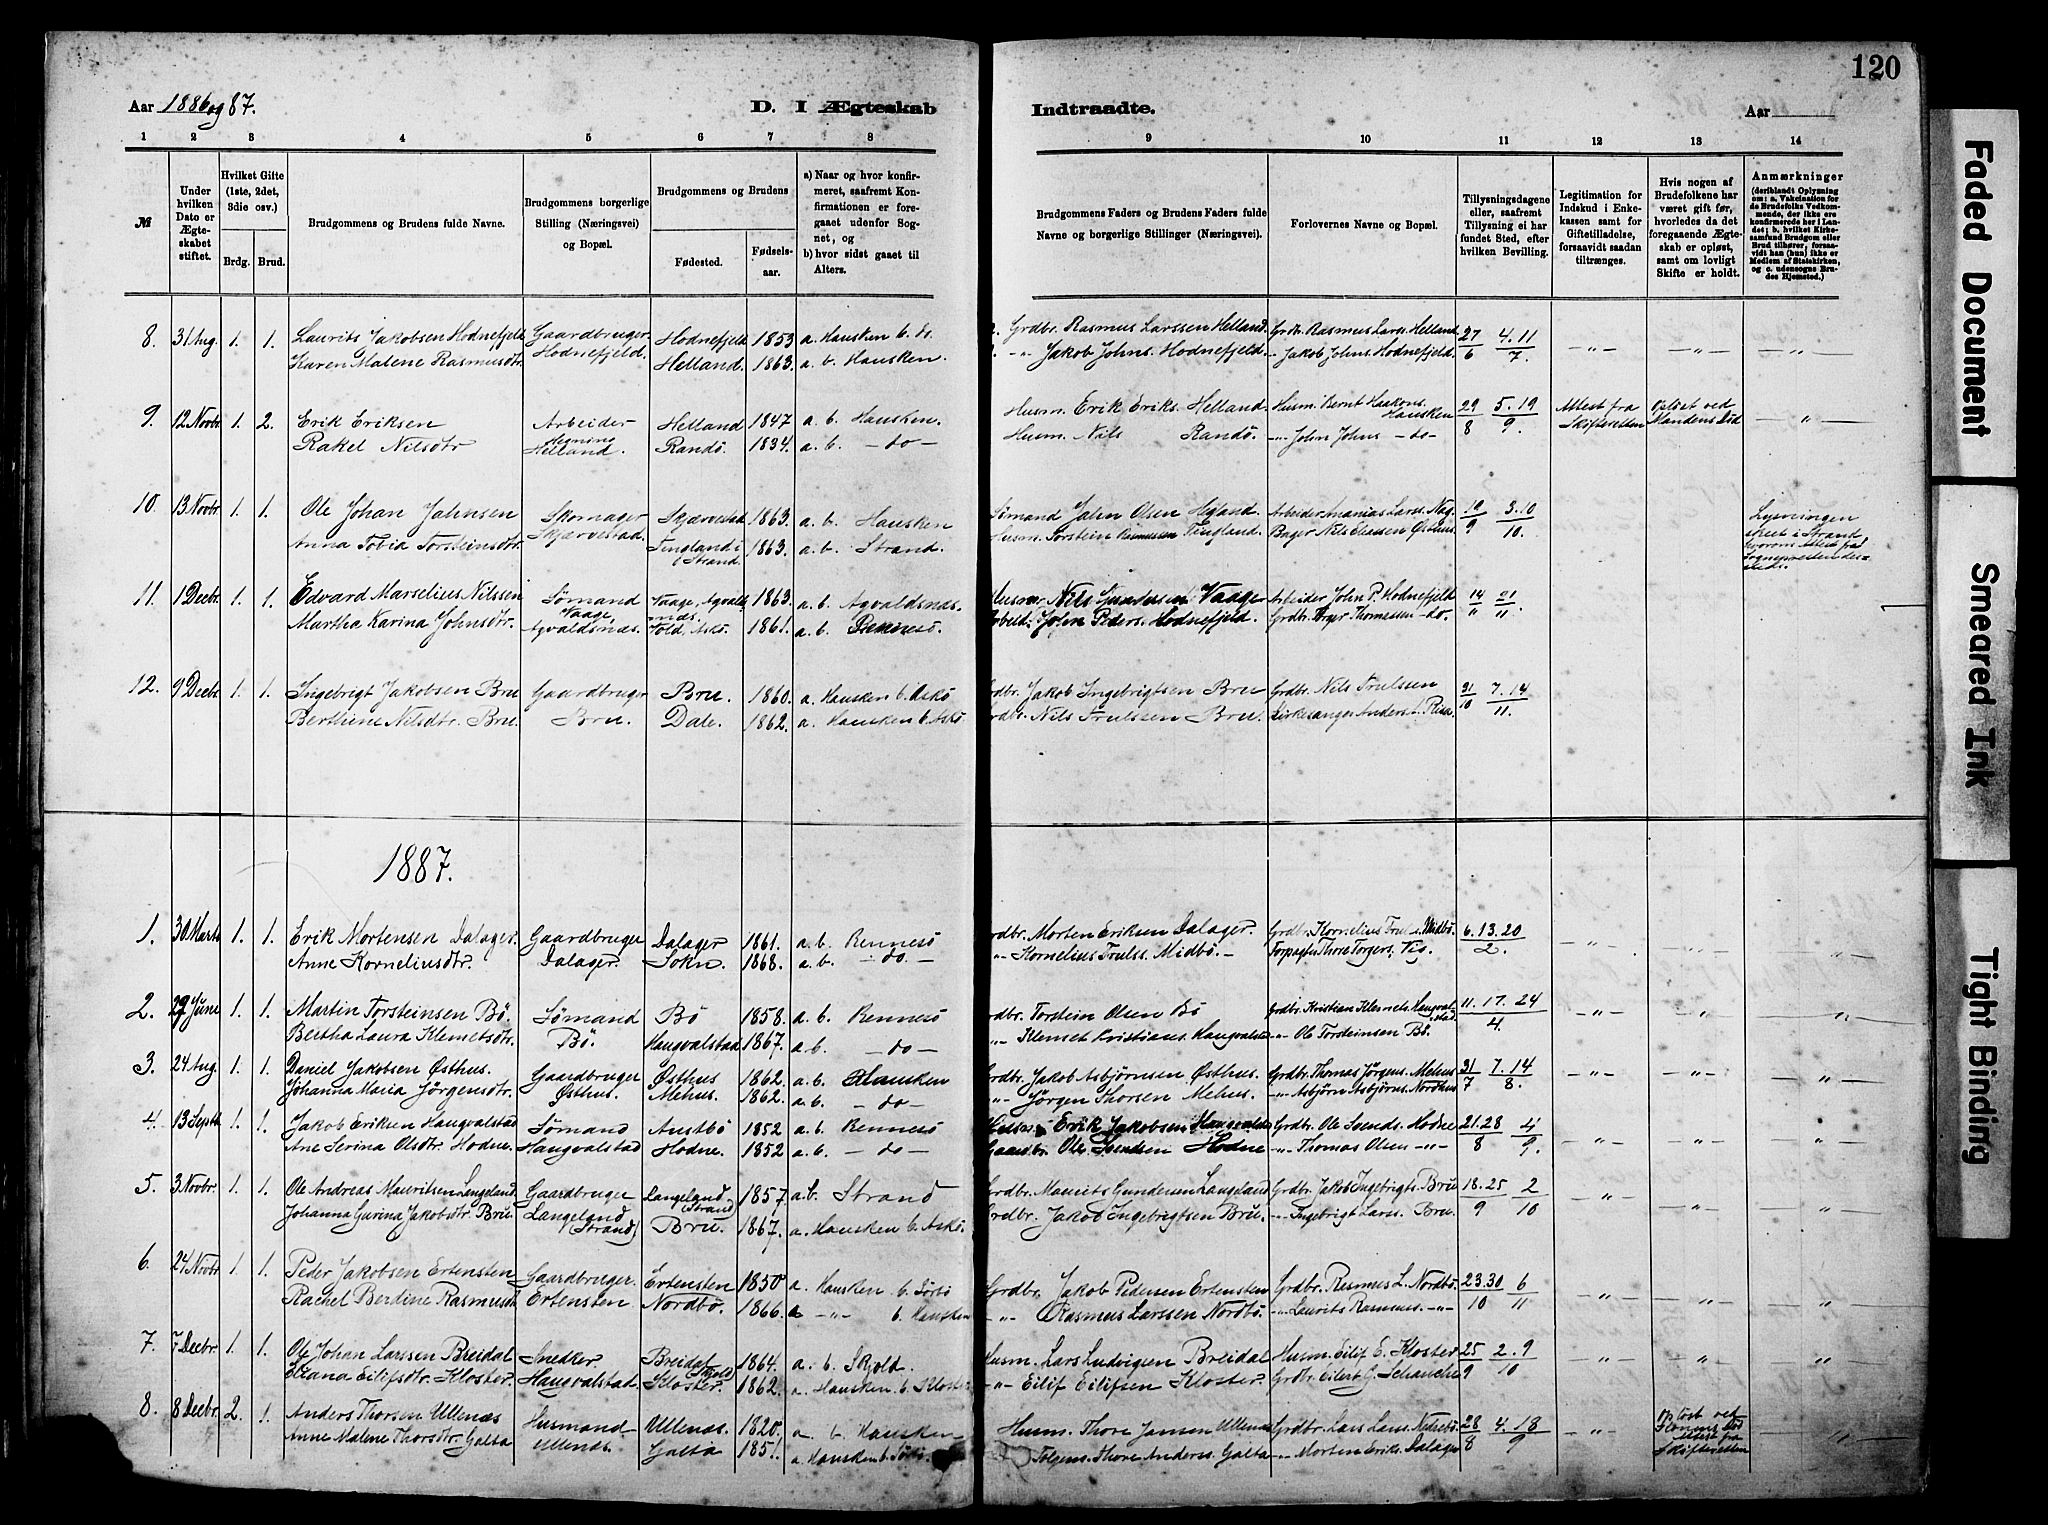 120
Aar 1886 og 87.
D. I Ægteskab Indtraadte.
Aar
1 2 3 4 5 6 7 8 9 10 11 12 13 14
№
Under hvilken Dato er Ægteskabet stiftet.
Hvilket Gifte (1ste, 2det, 3die osv.)
Brdg. Brud.
Brudgommens og Brudens fulde Navne.
Brudgommens borgerlige Stilling (Næringsvei) og Bopæl.
Brudgommens og Brudens
Fødested. Fødselsaar.
a) Naar og hvor konfirmeret, saafremt Konfirmationen er foregaaet udenfor Sognet, og
b) hvor sidst gaaet til Alters.
Brudgommens Faders og Brudens Faders fulde Navne og borgerlige Stillinger (Næringsvei).
Forlovernes Navne og Bopæl.
Tillysningsdagene eller, saafremt Tillysning ei har fundet Sted, efter hvilken Bevilling.
Legitimation for Indskud i Enkekassen samt for Giftetilladelse, forsaavidt saadan tiltrænges.
Hvis nogen af Brudefolkene har været gift før, hvorledes da det foregaaende Ægteskab er opløst, samt om lovligt Skifte er holdt.
Anmærkninger
(deriblandt Oplysning om: a. Vakcination for de Brudefolks Vedkommende, der ikke ere konfirmerede her i Landet; b. hvilket Kirkesamfund Brudgom eller Brud tilhører, forsaavidt han (hun) ikke er Medlem af Statskirken, og c. udensogns Brudes Hjemsted.)
8. 31 Aug. 1. 1. Laurits Jakobsen Hodnefjeld Gaardbruger Hodnefjeld 1853 a. Hausken b. do. Grdbr. Rasmus Larssen Helland. Grdbr. Rasmus Lars. Helland 27/6 4.11/7 -"- -"- -"-
Karen Malene Rasmusdtr. Hodnefjeld. Helland. 1863. a. b. Hausken. -"- Jakob Johns. Hodnefjeld -"- Jakob Johns. Hodnefjeld.
9. 12 Novbr. 1. 2. Erik Eriksen Arbeider Helland 1847 a. b. Hausken. Husm. Erik Eriks. Helland Husm. Bernt Haakons. Hausken 29/8 5.19/9. Attest fra Skifteretten Opløst ved Mandens Død -"-
Rakel Nilsdtr Helland. Randö. 1834. a. b. -do- Husm. Nils Randö. -"- John Johns -do-
10. 13 Novbr 1. 1. Ole Johan Johnsen Skomager Skjærvestad 1863. a. b. Hausken Sømand John Olsen Arbeider Ananias Lars. 19/9 3.10/10. Lysningen skeet i Strand
Anna Tobia Torsteinsdtr. Skjærvestad. Tingland i Strand. 1863. a. b. Strand. Husm. Torstein Rasmussen Tingland. Bager Nils Eliassen Østhus.
11. 1 Decbr. 1. 1. Edvard Marselius Nilssen Sømand Vaage, Agvaldsnæs. 1863. a. b. Agvaldsnæs. Husm. Nils Vaage Arbeider John P. Hodnefjeld 14/" 21/11.
Martha Karina Johnsdtr. Vaage, Agvaldsnæs. Told, Askö. 1861. a. b. Rennesö. John Peders. Hodnefjeld. Grdbr. Torger Thomassen -do-
12. 9 Decbr. 1. 1. Ingebrigt Jakobsen Bru Gaardbruger Bru. 1860. a. Hausken b. Askö Grdbr. Jakob Ingebrigtsen Bru Grdbr. Nils Trulssen 31/10 7.14/11.
Berthine Nilsdtr. Bru. Bru. Dale. 1862. a. Hausken b. Askö Grdbr. Nils Trulssen Bru Kirkesanger Anders Risa.
1887.
1. 30 Marts 1. 1. Erik Mortensen Dalager. Gaardbruger Dalager 1861. a. b. Rennesö Grdbr. Morten Eriksen Dalager. Grdbr. Kornelius Truls. Midbö. 6.13.20/2. -"- -"- -"-
Anne Korneliusdtr. Dalager. Sokn. 1868. a. b. -do.- -"- Kornelius Trulss. Midbö.- Forpagter Thore Torgers. Vig.
2. 29 Juni 1. 1. Martin Torsteinsen Bö. Sømand Bö 1858. a. b. Rennesö Grdbr. Torstein Olsen Bö Grdbr. Kristian Klemets. Haugvalstad. 11.17.24/4. -"- -"- -"-
Bertha Laura Klemetsdtr. Bö. Haugvalstad 1867. a. b. -do- -"- Klemet Kristians. Haugvalstad -"- Ole Torsteinsen Bö.
3. 24 Aug. 1. 1. Daniel Jakobsen Østhus. Gaardbruger Østhus 1862. a. b. Hausken Grdbr. Jakob Asbjörnsen Østhus. Grdbr. Thomas Jörgens. Mehus 31/7 7.14/8. -"- -"- -"-
Johanna Maria Jörgensdtr. Østhus. Mehus. 1862. a. b. -do- -"- Jörgen Thorsen Mehus. -"- Asbjörn Asbjörns. Nordhus
4. 13 Septb. 1. 1. Jakob Eriksen Haugvalstad Sømand Austbö 1852 a. b. Rennesö Husm. Erik Jakobsen Haugvalstad Grdbr. Ole Svends. Hodne 21.28/8 4/9. -"- -"- -"-
Ane Serina Olsdtr. Hodne. Haugvalstad Hodne. 1852 a. b. -do- Gaardbr. Ole Svendsen Hodne -"- Thomas Olsen -"-
5. 3 Novbr. 1. 1. Ole Andreas Mauritsen Langeland. Gaardbruger Langeland, (Strand) 1857. a. b. Strand Grdbr. Maurits Gundersen Langeland Grdbr. Jakob Ingebrigts. Bru 18.25/9 2/10 -"- -"- -"-
Johanna Gurina Jakobsdtr. Bru. Langeland (Strand) Bru. 1867. a. Hausken b. Askö. Grdbr. Jakob Ingebrigtsen Bru. -"- Ingebrigt Lars. Bru.
6. 24 Novbr 1. 1. Peder Jakobsen Ertensten Gaardbruger. Ertensten 1850 a. Hausken b. Sörbö Grdbr. Jakob Pedersen Ertensten Grdbr. Rasmus L. Nordbö. 23.30/10 6/11 -"- -"- -"-
Rachel Berdine Rasmusdtr. Ertensten Nordbö. 1866. a. -"- b. Hausken -"- Rasmus Larssen Nordbö. -"- Laurits Rasmus. -"-
7. 7 Decbr. 1. 1. Ole Johan Larssen Breidal Snedker Breidal Skjold 1864. a. b. Skjold. Husm. Lars Ludvigsen Breidal Husm. Eilif E. Kloster 25/9 2.9/10 -"- -"- -"-
Eliana Eilifsdtr. Kloster. Haugvalstad. Kloster. 1862. a. Hausken b. Kloster -"- Eilif Eilifsen Kloster. Grdbr. Eilert G. Schanche
8. 8 Decbr. 2. 1. Anders Thorsen Ullenæs Husmand Ullenæs. 1820. a. b. Hausken Husm. Thore Jansen Ullenæs Grdbr. Lars Lars. Nedrebö. 28/8 4.18/9 -"- Opløst ved Konens Død Attest fra Skifteretten -"-
Anne Malene Thorsdtr. Galta Ullenæs. Galta 1851. a. Hausken b. Sörbö. Thore Anders. Galta -"- Morten Eriks. Dalager
Faded Document
Smeared Ink
Tight Binding